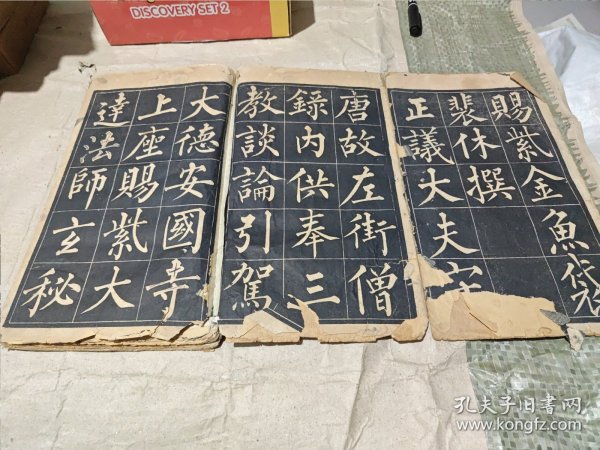 賜紫金魚袋
裴休撰
正議大夫
唐故左街僧
錄內供奉三
教談論引駕
大德安國寺
上座賜紫大
達法師玄秘
DISCOVERY SET 2
孔夫子旧书网
www.kongfz.com